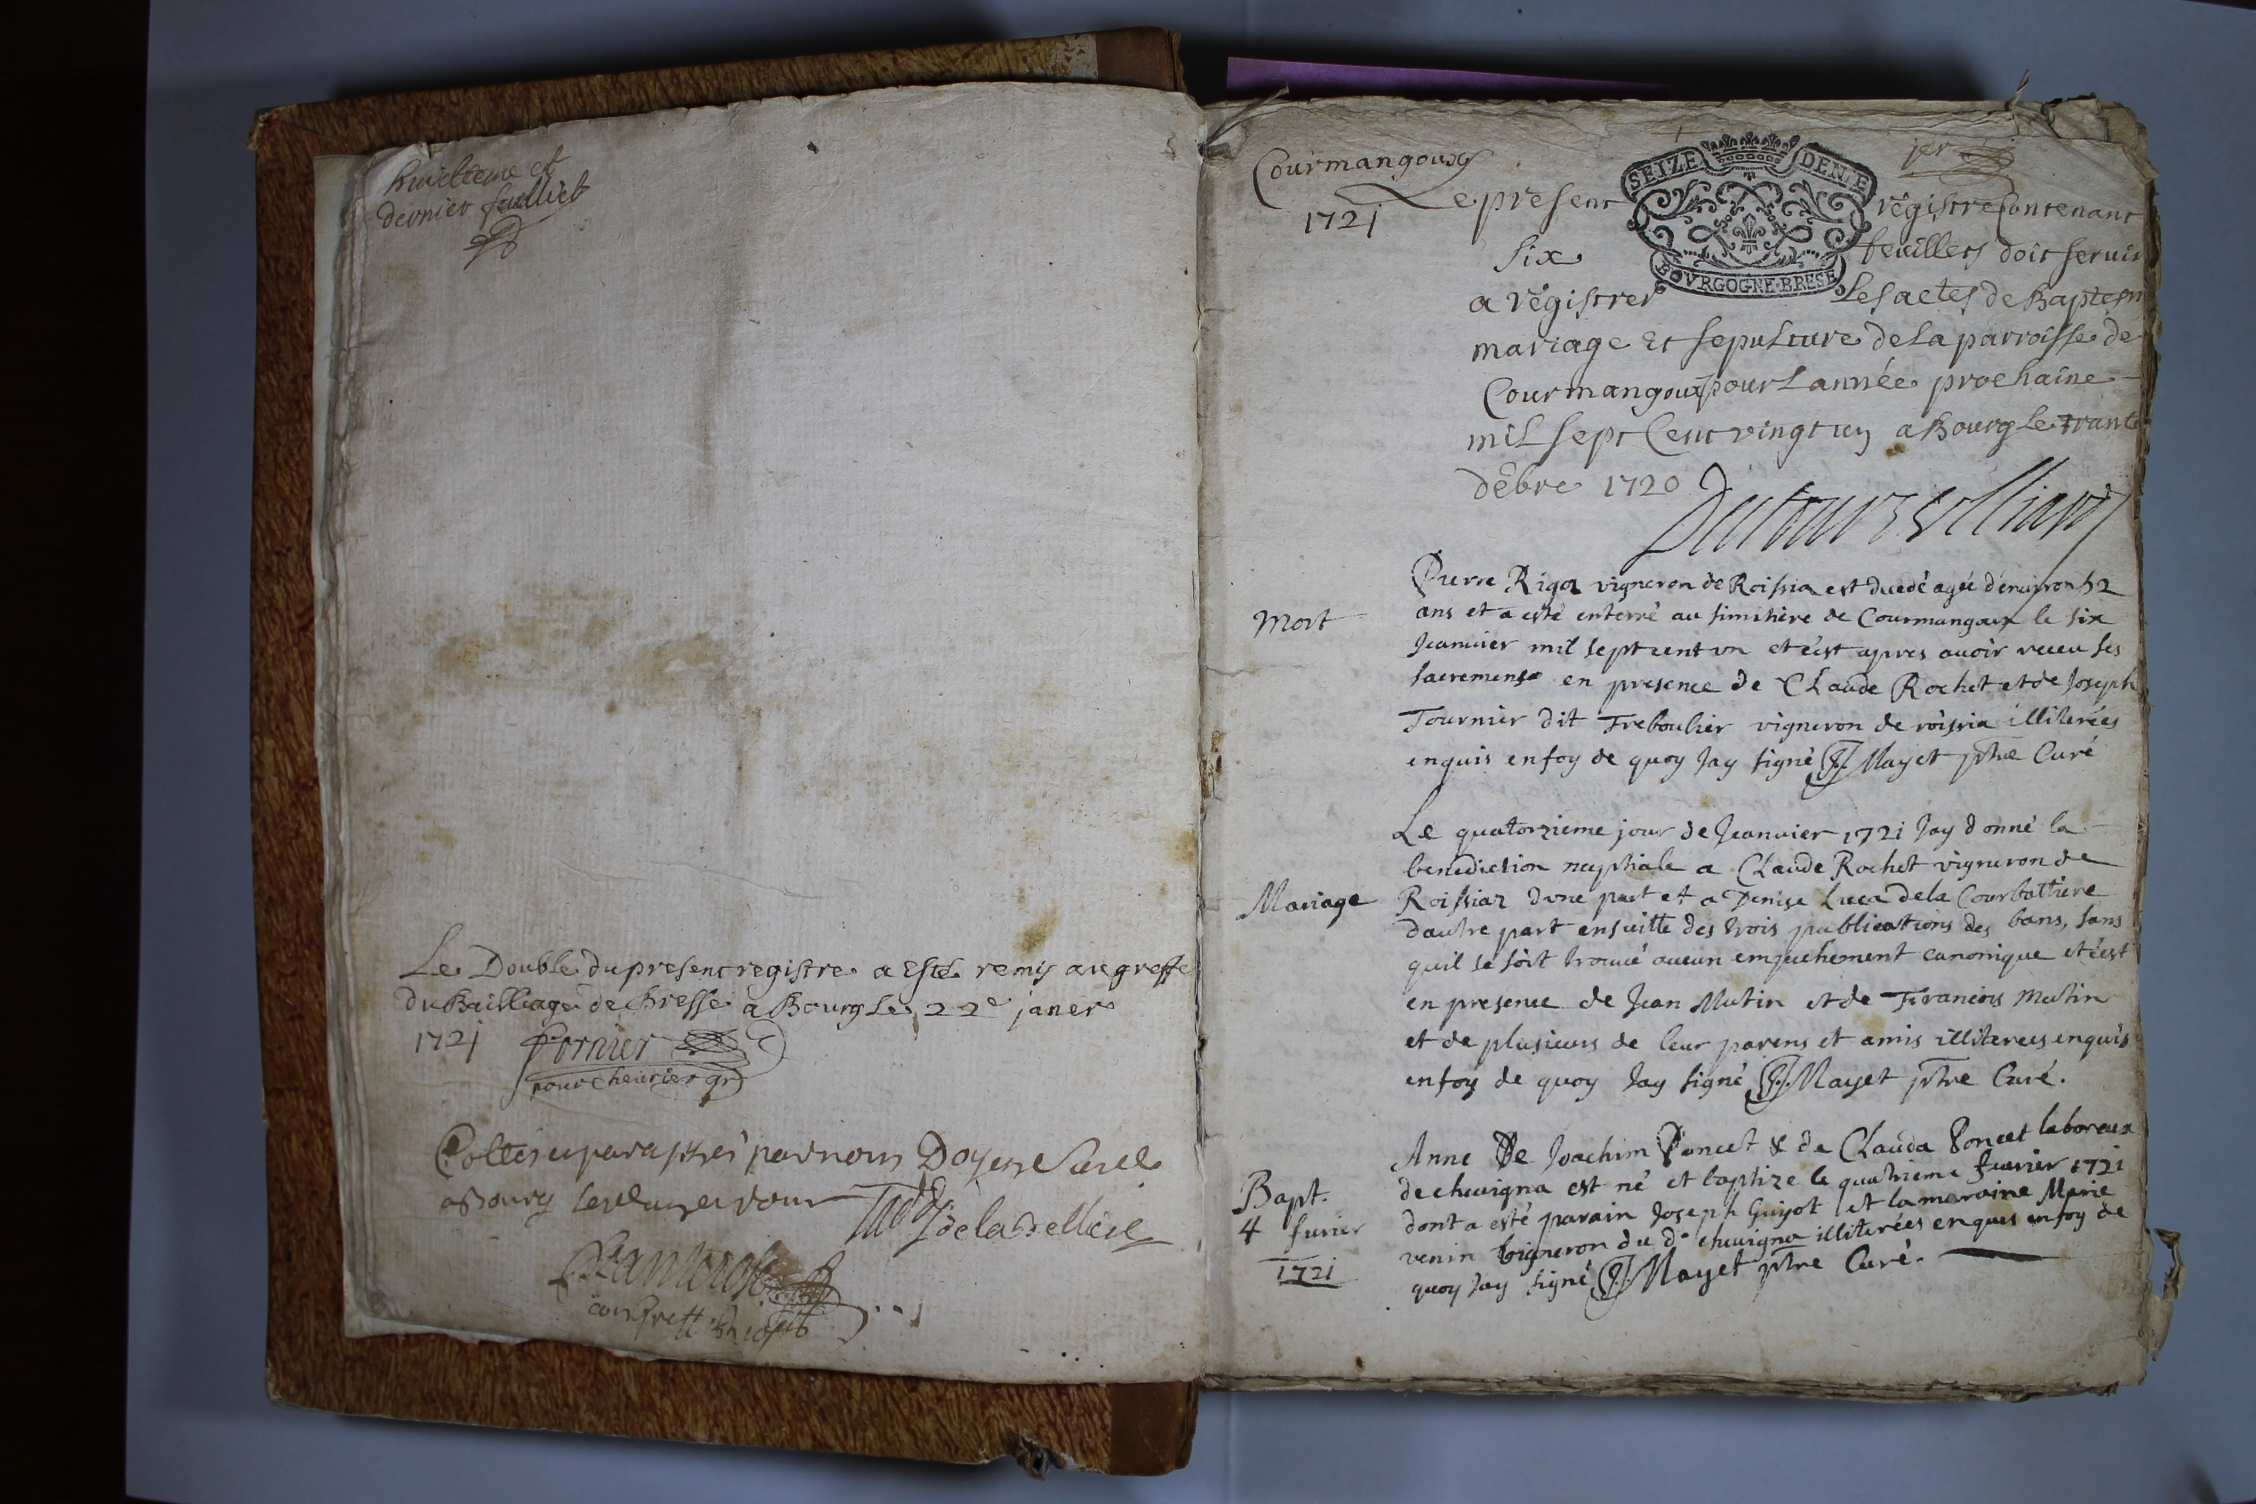 huictieme et
dernier feulliet
Le Double du present registre a esté remis au greffe
du Bailliage de Bresse a Bourg Le 22e janer
1721 Fornier
pour cheurier gr
Cottés et paraphés par nous Doyen
a Bourg
Courmangoux
1721
jer
SEIZE DENIE
BOVRGOGNE·BRESE
Le present registre Contenant
six feuillets doit servir
a régistrer Les actes de Baptesm
mariage et sepulture de La parroisse de
Courmangoux pour L année prochaine
mil sept Cent vingt un a Bourg Le trante
dêbre 1720
Mort
Pierre Rigot vigneron de Roissia est decedé agée d'enuiron 52
ans et a esté enterré au simitière de Courmangoux le six
Jeanuier mil sept cent vn et c'est apres auoir receu ses
sacremens en presence de CLaude Rochet et de Joseph
Tournier dit Treboulier vigneron de roissia illiterées
enquis en foy de quoy Jay signé J. Mayet ptre Curé
Mariage
Le quatorzieme jour de Jeanuier 1721 Jay donné la
benediction neptiale a CLaude Rochet vigneron de
Roissiaz dune part et a Denise Luca de la Courbattiere
dautre part ensuitte des trois publications des bans, sans
quil se soit trouué aucun empechement canonique et c'est
en presence de Jean Mutin et de Francois Mutin
et de plusieurs de leur parens et amis illiterees enquis
en foy de quoy Jay signé J. Mayet ptre Curé.
Bapt.
4 feurier
1721
Anne De Joachim Poncet & de CLauda Poncet laboreux
de cheuigna est né et baptize le quatrieme feurier 1721
dont a esté parain Joseph Guyot et la maraine Marie
venin vigneron du d. cheuigna illiterées enques en foy de
quoy Jay signé J. Mayet ptre Curé.